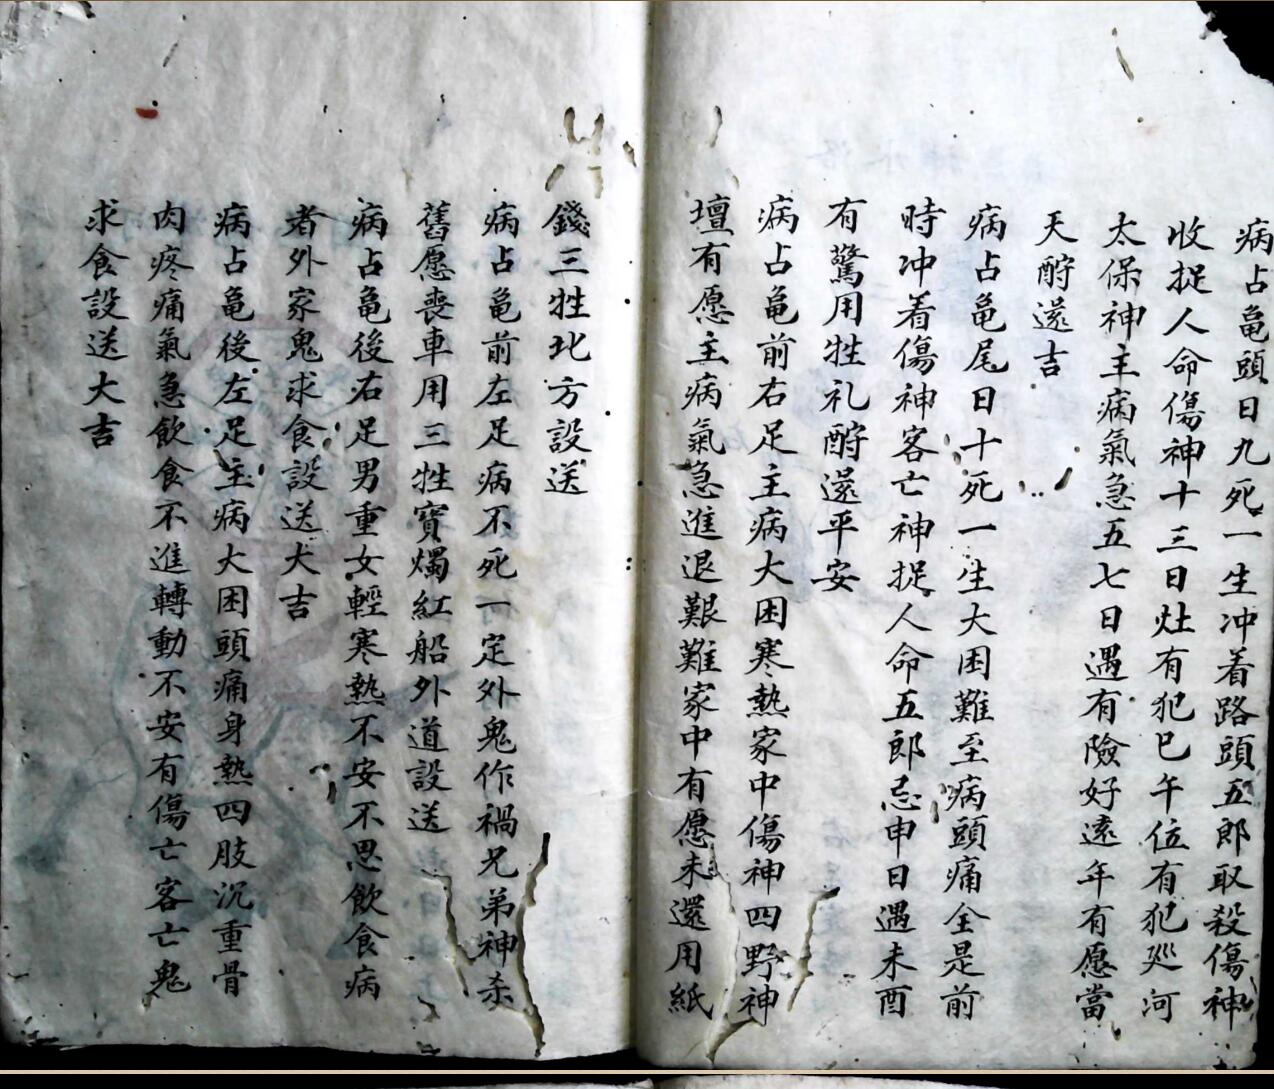 病占亀頭日九死一生冲着路頭五郎取殺傷神
收捉人命傷神十三日灶有犯巳午位有犯廵河
太保神主病氣急五七日遇有險好遠年有愿當
天酧還吉
病占亀尾日十死一生大困難至病頭痛全是前
時冲着傷神客亡神捉人命五郎忌申日遇未酉
有驚用牲礼酧還平安
病占亀前右足主病大困寒熱家中傷神四野神
壇有愿主病氣急進退艱難家中有愿未還用紙
錢三牲北方設送
病占亀前左足病不死一定外鬼作禍兄弟神杀
舊愿喪車用三牲寶燭紅船外道設送
病占亀後右足男重女輕寒熱不安不思飲食病
者外家鬼求食設送大吉
病占亀後左足主病大困頭痛身熱四肢沉重骨
肉疼痛氣急飲食不進轉動不安有傷亡客亡鬼
求食設送大吉